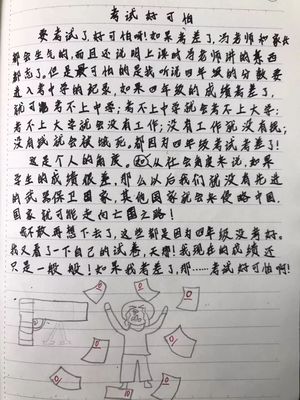 考试好可怕
要考试了,好可怕啊!如果考差了,冯老师和家长
都会生气的,而且还说明上课时为老师讲的东西
都忘了。但是最可怕的是我听说四年级的分数要
进入考中学的纪录,如果四年级的成绩考差了,
就可能考不上中学;考不上中学就会考不上大学;
考不上大学就会没有工作;没有工作就没有钱;
没有钱就会被饿死。都因为四年级考试考差了!
这是个人的角度。如从社会角度来说,如果
学生的成绩很差,那么以后我们就没有先进
的武器保卫国家,其他国家就会来侵略中国,
国家就可能走向亡国之路!
我不敢再想下去了,这些都是因为四年级没考好。
我又看了一下自己的试卷,天哪!我现在的成绩还
只是一般般!如果我考差了,那……考试好可怕啊!
0
0
0
0
0
10